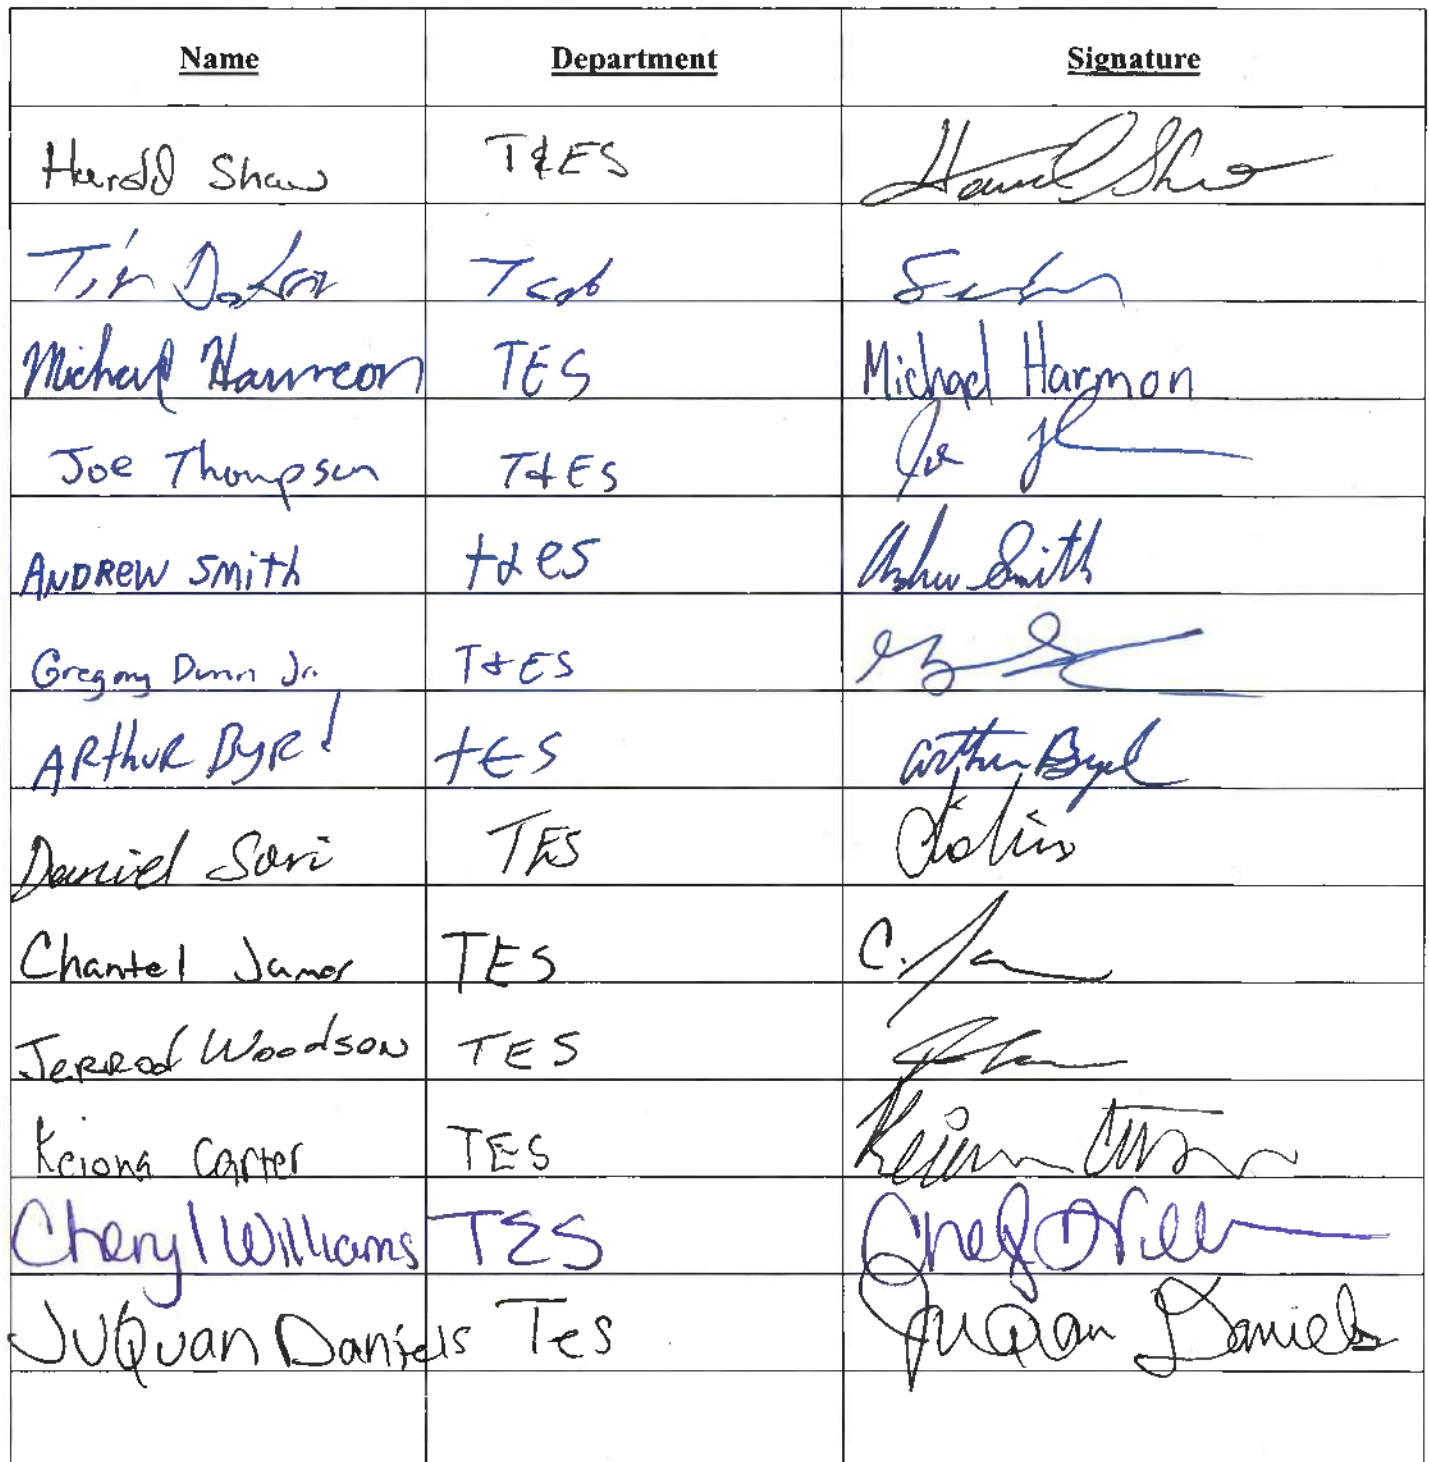 Name Department Signature
Harold Shaw T&ES Harold Shaw
Tim
Michael Harmon TES Michael Harmon
Joe Thompson T&ES Joe
ANDREW SMith t&eS Andrew Smith
Gregory Dunn Jr. T&ES
ARthuR ByRd tES Arthur Byrd
Daniel Sori TES
Chantel James TES C.
JeRRod WoodsoN TES
Keiona Carter TES
Cheryl Williams TES
JuQuan Daniels TeS JuQuan Daniels